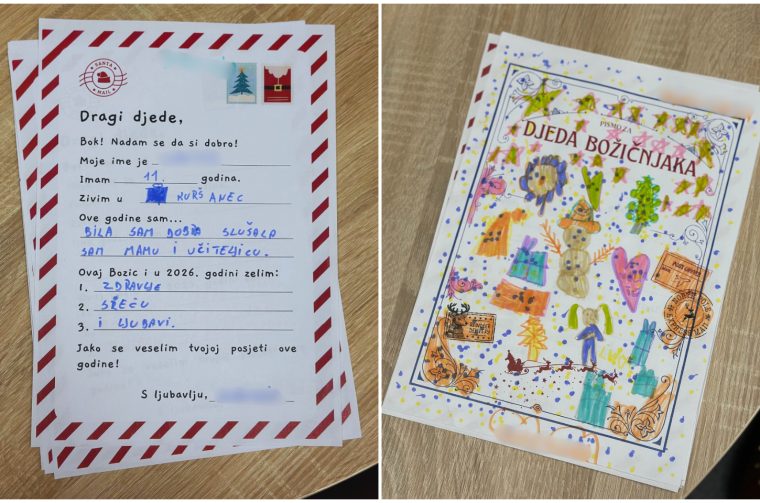 SANTA
MAIL
Dragi djede,
Bok! Nadam se da si dobro!
Moje ime je
Imam 11. godina.
Zivim u KURŠANEC
Ove godine sam...
BILA SAM DOBRA SLUŠALA
SAM MAMU I UČITELJICU.
Ovaj Bozic i u 2026. godini zelim:
1. ZDRAVLJE
2. SREĆU
3. I LJUBAVI.
Jako se veselim tvojoj posjeti ove
godine!
S ljubavlju,
PISMO ZA
DJEDA BOŽIĆNJAKA